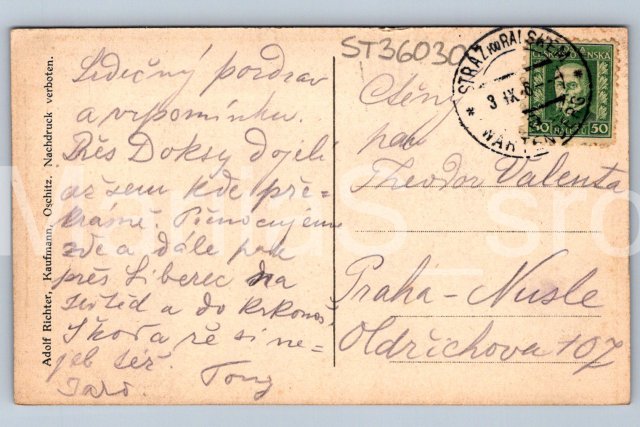 Adolf Richter, Kaufmann, Oschitz. Nachdruck verboten.
ST36030
STRÁŽ POD RALSKEM
3 IX
WARTENB
ČESKOSLOVENSKÁ
50 HALÉŘŮ 50
Srdečný pozdrav
a vzpomínku.
Přes Doksy dojeli
až sem kde pře-
krásně. Přenocujeme
zde a dále pak
přes Liberec na
a do Krkonoš.
Škoda že si ne-
jel též.
Jaro. Tony
Ctěný
pan
Theodor Valenta
Praha - Nusle
Oldřichova 107
MariuS_sro